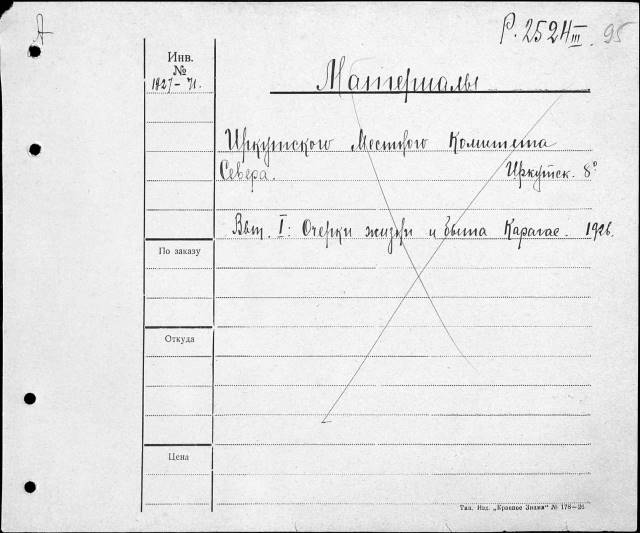 А
Р. 2524 III 95
Инв.
№
1927-71.
Материалы
Иркутского Местного Комитета
Севера. Иркутск. 8°
Вып. I: Очерки жизни и быта Карагас. 1926.
По заказу
Откуда
Цена
Тип. Изд. „Красное Знамя" № 178—26